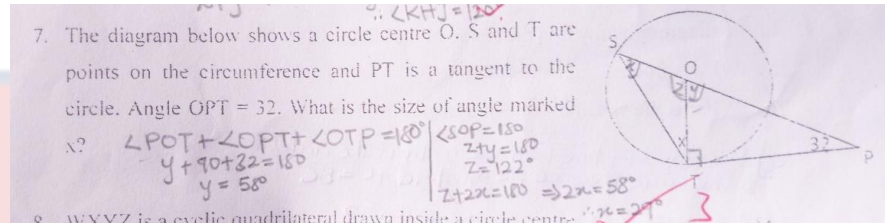 ∴ ∠KHJ = 120°
7. The diagram below shows a circle centre O. S and T are
points on the circumference and PT is a tangent to the
circle. Angle OPT = 32. What is the size of angle marked
x?
∠POT + ∠OPT + ∠OTP = 180°
y + 90 + 32 = 180
y = 58°
∠SOP = 180
z + y = 180
z = 122°
z + 2x = 180 ⇒ 2x = 58°
∴ x = 29°
S
O
z y
x
32
P
T
3
WXYZ is a cyclic quadrilateral drawn inside a circle centre